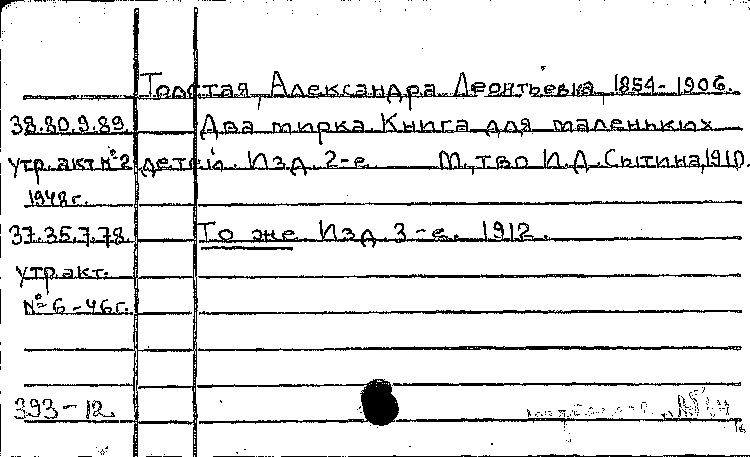 Толстая, Александра Леонтьевна, 1854-1906.
38.80.9.89. Два мирка. Книга для маленьких
утр. акт №2 детей. Изд. 2-е М., т-во И.Д. Сытина, 1910.
1948г.
37.35.7.78 То же Изд. 3-е. 1912.
утр. акт.
№ 6-46г.
393-12